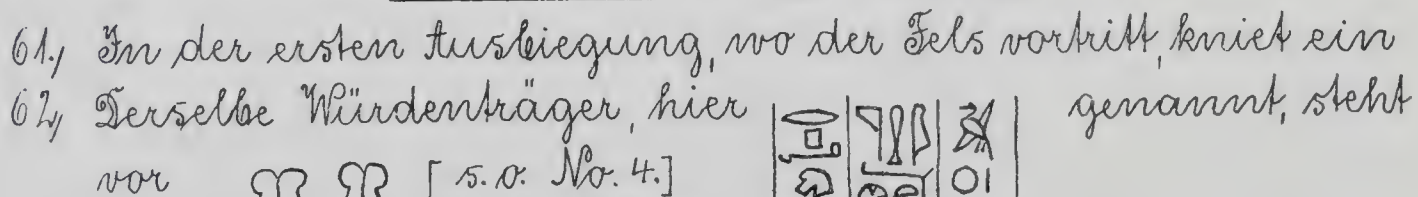 61., In der ersten Ausbiegung, wo der Fels vortritt, kniet ein
62., Derselbe Würdenträger, hier genannt, steht
vor [s. o. No. 4.]